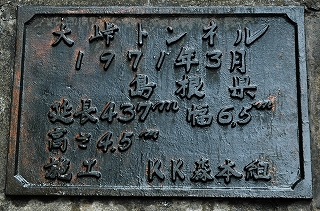 大峠トンネル
1971年3月
島根県
延長437m 幅6.5m
高さ4.5m
施工 KK森本組